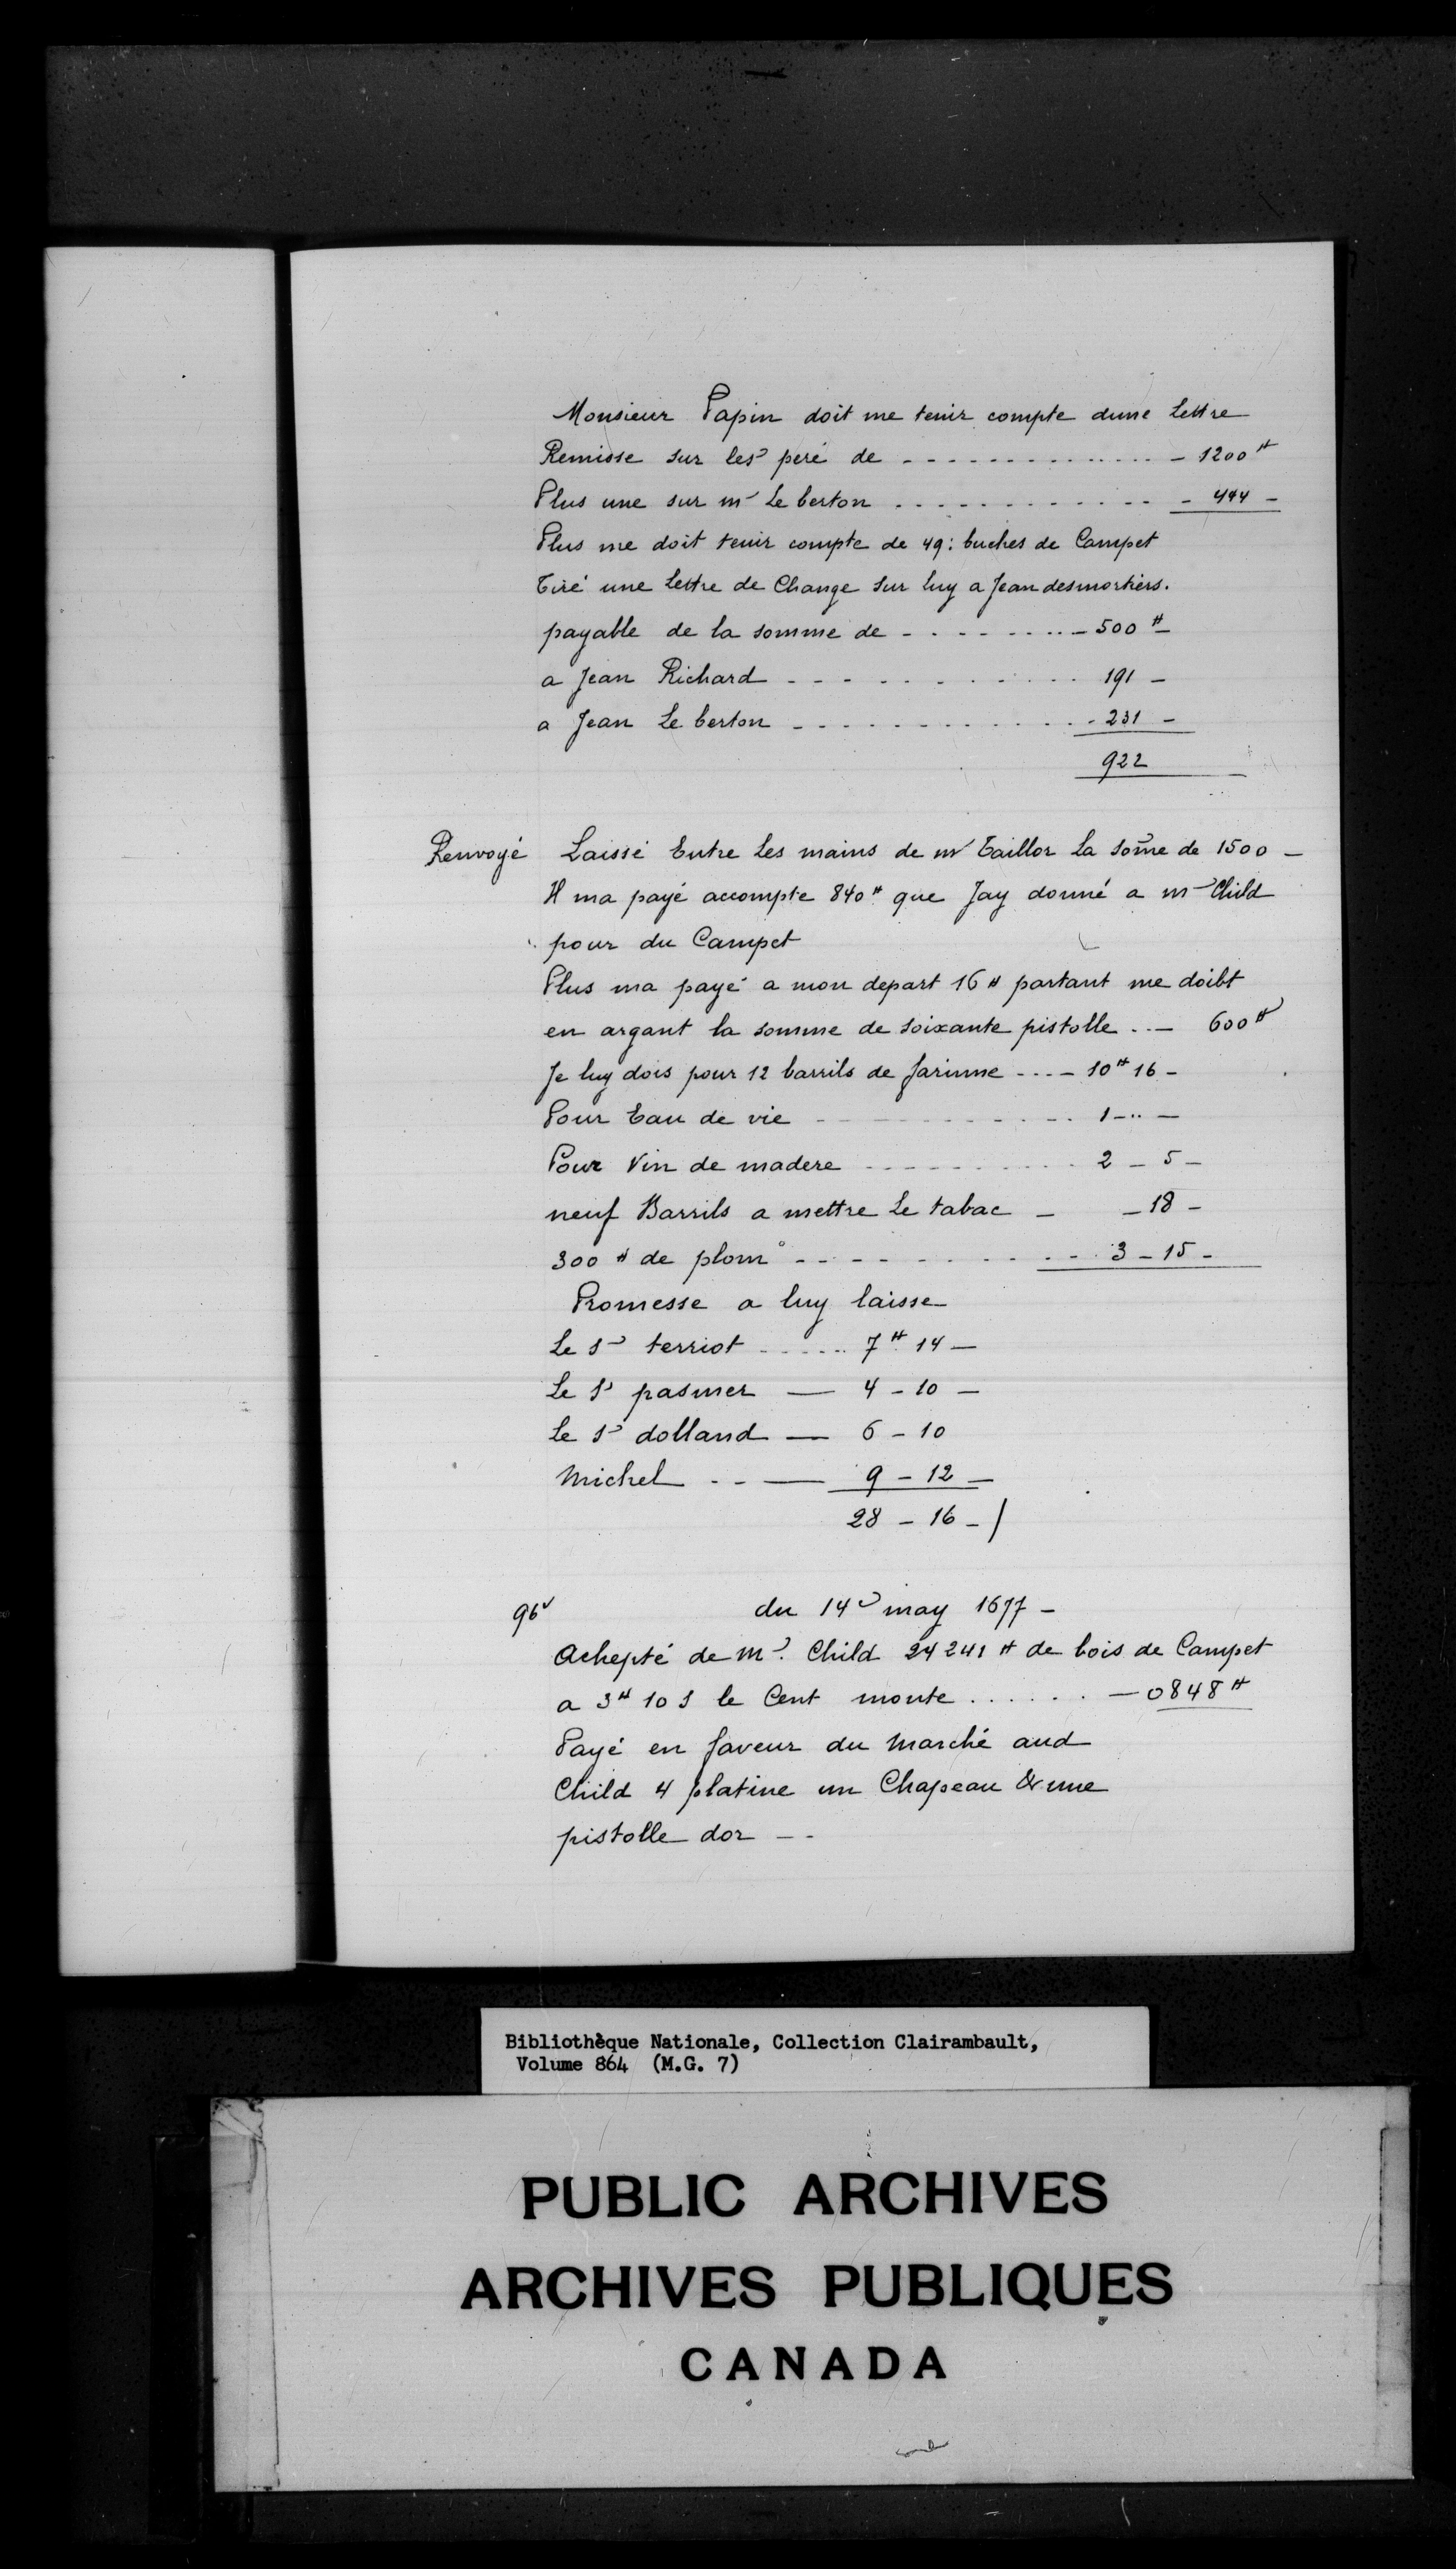 Monsieur Papin doit me tenir compte dune Lettre
Remisse sur les peré de - - - - - - - 1200 ₶
Plus une sur mr Le berton - - - - - - - 444 -
Plus me doit tenir compte de 49: buches de Campet
Tiré une Lettre de Change sur luy a Jean desmortiers.
payable de la somme de - - - - - - - 500 ₶
a Jean Richard - - - - - - - 191 -
a Jean Le berton - - - - - - - 231 -
922
Renvoyé Laissé Entre Les mains de mr Taillor La some de 1500 -
Il ma payé accompte 840 ₶ que Jay donné a mr Child
pour du Campet
Plus ma payé a mon depart 16 ₶ partant me doibt
en argant la somme de soixante pistolle - - 600 ₶
Je luy dois pour 12 barrils de farinne - - - 10 ₶ 16 -
Pour Eau de vie - - - - - - - 1 - " -
Pour Vin de madere - - - - - - - 2 - 5 -
neuf Barrils a mettre Le tabac - - 18 -
300 ₶ de plom - - - - - - - 3 - 15 -
Promesse a luy laisse
Le Sr terriot - - - - 7 ₶ 14 -
Le Sr pasmer - 4 - 10 -
Le Sr dolland - 6 - 10
Michel - - - 9 - 12 -
28 - 16 - /
96v du 14e may 1677 -
Achepté de mr. Child 24241 ₶ de bois de Campet
a 3 ₶ 10 s le Cent monte . . . . . . - 0848 ₶
Payé en faveur du Marché aud
Child 4 platine un Chapeau & une
pistolle dor - -
Bibliothèque Nationale, Collection Clairambault,
Volume 864 (M.G. 7)
PUBLIC ARCHIVES
ARCHIVES PUBLIQUES
CANADA